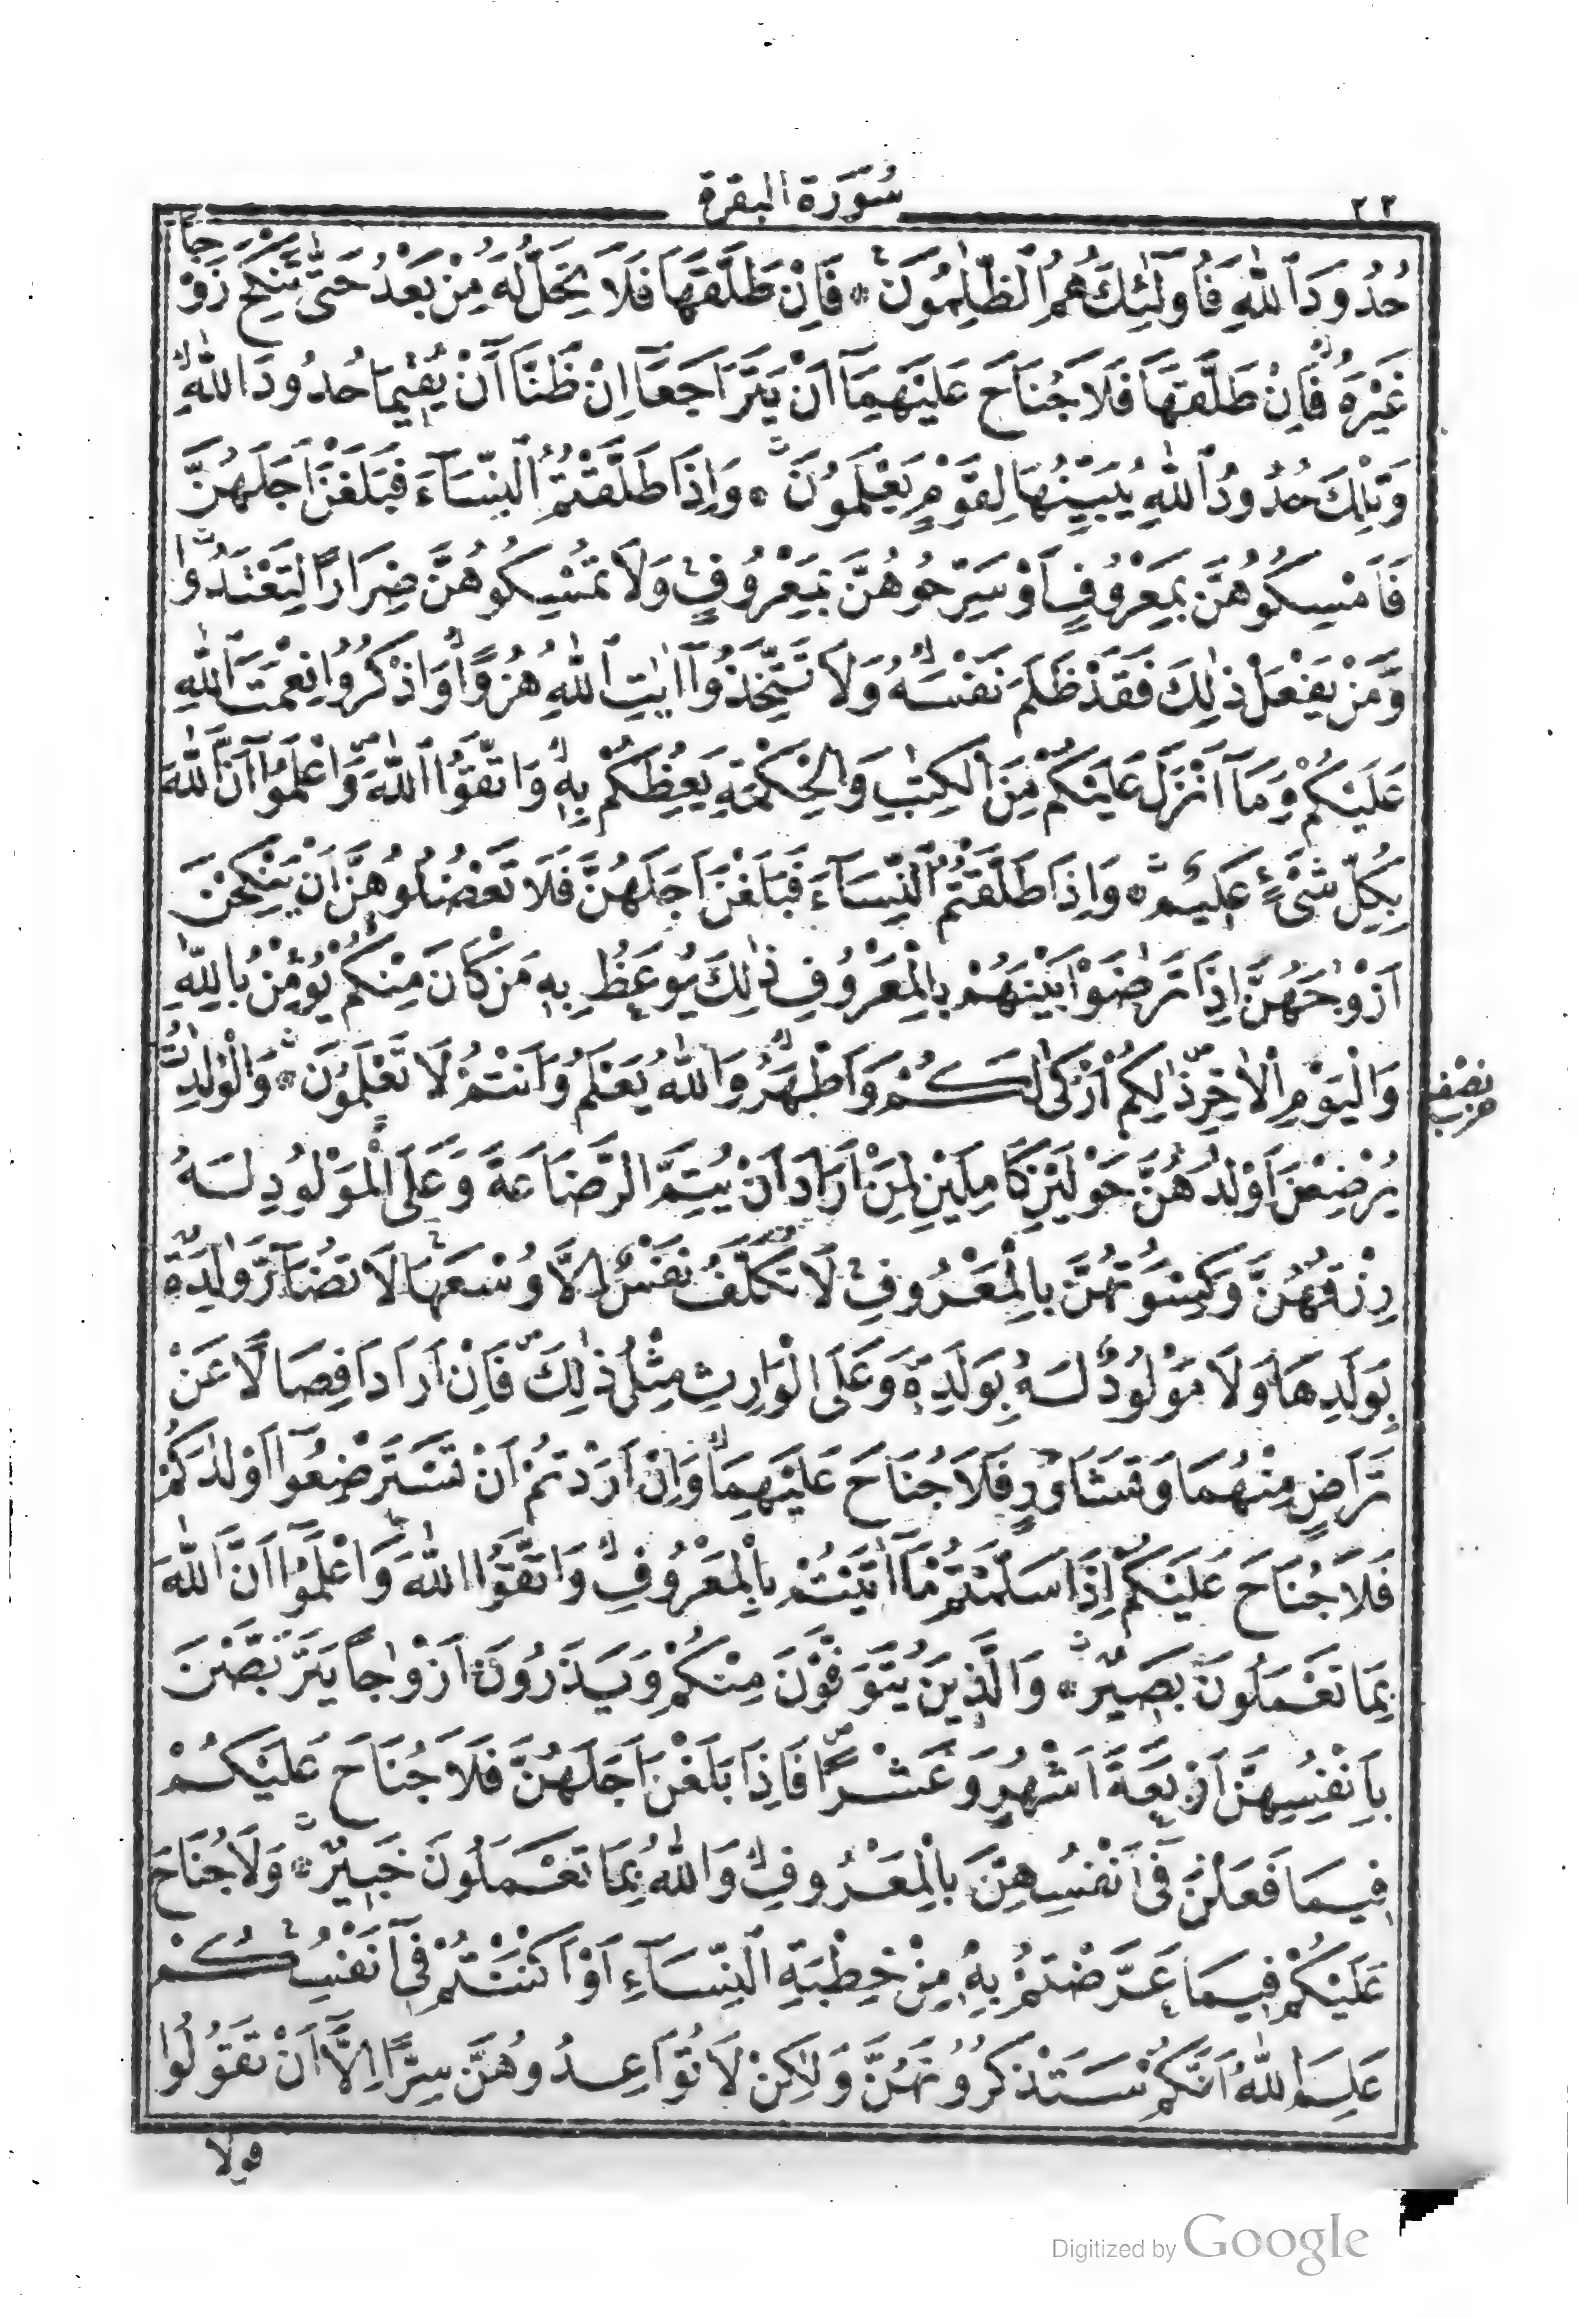 ٢٢
سُورَة البقرة
حُدُودَ اللّٰهِ فَأُولٰٓئِكَ هُمُ الظّٰلِمُونَ ۞ فَاِنْ طَلَّقَهَا فَلَا تَحِلُّ لَهُ مِنْ بَعْدُ حَتّٰى تَنْكِحَ زَوْجًا
غَيْرَهُ فَاِنْ طَلَّقَهَا فَلَا جُنَاحَ عَلَيْهِمَآ اَنْ يَتَرَاجَعَآ اِنْ ظَنَّآ اَنْ يُقِيمَا حُدُودَ اللّٰهِ
وَتِلْكَ حُدُودُ اللّٰهِ يُبَيِّنُهَا لِقَوْمٍ يَعْلَمُونَ ۞ وَاِذَا طَلَّقْتُمُ النِّسَآءَ فَبَلَغْنَ اَجَلَهُنَّ
فَاَمْسِكُوهُنَّ بِمَعْرُوفٍ اَوْ سَرِّحُوهُنَّ بِمَعْرُوفٍ وَلَا تُمْسِكُوهُنَّ ضِرَارًا لِتَعْتَدُوا
وَمَنْ يَفْعَلْ ذٰلِكَ فَقَدْ ظَلَمَ نَفْسَهُ وَلَا تَتَّخِذُوٓا اٰيٰتِ اللّٰهِ هُزُوًا وَاذْكُرُوا نِعْمَتَ اللّٰهِ
عَلَيْكُمْ وَمَآ اَنْزَلَ عَلَيْكُمْ مِنَ الْكِتٰبِ وَالْحِكْمَةِ يَعِظُكُمْ بِهِ وَاتَّقُوا اللّٰهَ وَاعْلَمُوٓا اَنَّ اللّٰهَ
بِكُلِّ شَىْءٍ عَلِيمٌ ۞ وَاِذَا طَلَّقْتُمُ النِّسَآءَ فَبَلَغْنَ اَجَلَهُنَّ فَلَا تَعْضُلُوهُنَّ اَنْ يَنْكِحْنَ
اَزْوٰجَهُنَّ اِذَا تَرٰضَوْا بَيْنَهُمْ بِالْمَعْرُوفِ ذٰلِكَ يُوعَظُ بِهِ مَنْ كَانَ مِنْكُمْ يُؤْمِنُ بِاللّٰهِ
وَالْيَوْمِ الْاٰخِرِ ذٰلِكُمْ اَزْكٰى لَكُمْ وَاَطْهَرُ وَاللّٰهُ يَعْلَمُ وَاَنْتُمْ لَا تَعْلَمُونَ ۞ وَالْوٰلِدٰتُ
نصف
حزب
يُرْضِعْنَ اَوْلٰدَهُنَّ حَوْلَيْنِ كَامِلَيْنِ لِمَنْ اَرَادَ اَنْ يُتِمَّ الرَّضَاعَةَ وَعَلَى الْمَوْلُودِ لَهُ
رِزْقُهُنَّ وَكِسْوَتُهُنَّ بِالْمَعْرُوفِ لَا تُكَلَّفُ نَفْسٌ اِلَّا وُسْعَهَا لَا تُضَآرَّ وَالِدَةٌ
بِوَلَدِهَا وَلَا مَوْلُودٌ لَهُ بِوَلَدِهِ وَعَلَى الْوَارِثِ مِثْلُ ذٰلِكَ فَاِنْ اَرَادَا فِصَالًا عَنْ
تَرَاضٍ مِنْهُمَا وَتَشَاوُرٍ فَلَا جُنَاحَ عَلَيْهِمَا وَاِنْ اَرَدْتُمْ اَنْ تَسْتَرْضِعُوٓا اَوْلٰدَكُمْ
فَلَا جُنَاحَ عَلَيْكُمْ اِذَا سَلَّمْتُمْ مَآ اٰتَيْتُمْ بِالْمَعْرُوفِ وَاتَّقُوا اللّٰهَ وَاعْلَمُوٓا اَنَّ اللّٰهَ
بِمَا تَعْمَلُونَ بَصِيرٌ ۞ وَالَّذِينَ يُتَوَفَّوْنَ مِنْكُمْ وَيَذَرُونَ اَزْوٰجًا يَتَرَبَّصْنَ
بِاَنْفُسِهِنَّ اَرْبَعَةَ اَشْهُرٍ وَعَشْرًا فَاِذَا بَلَغْنَ اَجَلَهُنَّ فَلَا جُنَاحَ عَلَيْكُمْ
فِيمَا فَعَلْنَ فِىٓ اَنْفُسِهِنَّ بِالْمَعْرُوفِ وَاللّٰهُ بِمَا تَعْمَلُونَ خَبِيرٌ ۞ وَلَا جُنَاحَ
عَلَيْكُمْ فِيمَا عَرَّضْتُمْ بِهِ مِنْ خِطْبَةِ النِّسَآءِ اَوْ اَكْنَنْتُمْ فِىٓ اَنْفُسِكُمْ
عَلِمَ اللّٰهُ اَنَّكُمْ سَتَذْكُرُونَهُنَّ وَلٰكِنْ لَا تُوَاعِدُوهُنَّ سِرًّا اِلَّآ اَنْ تَقُولُوا
قولا
Digitized by Google